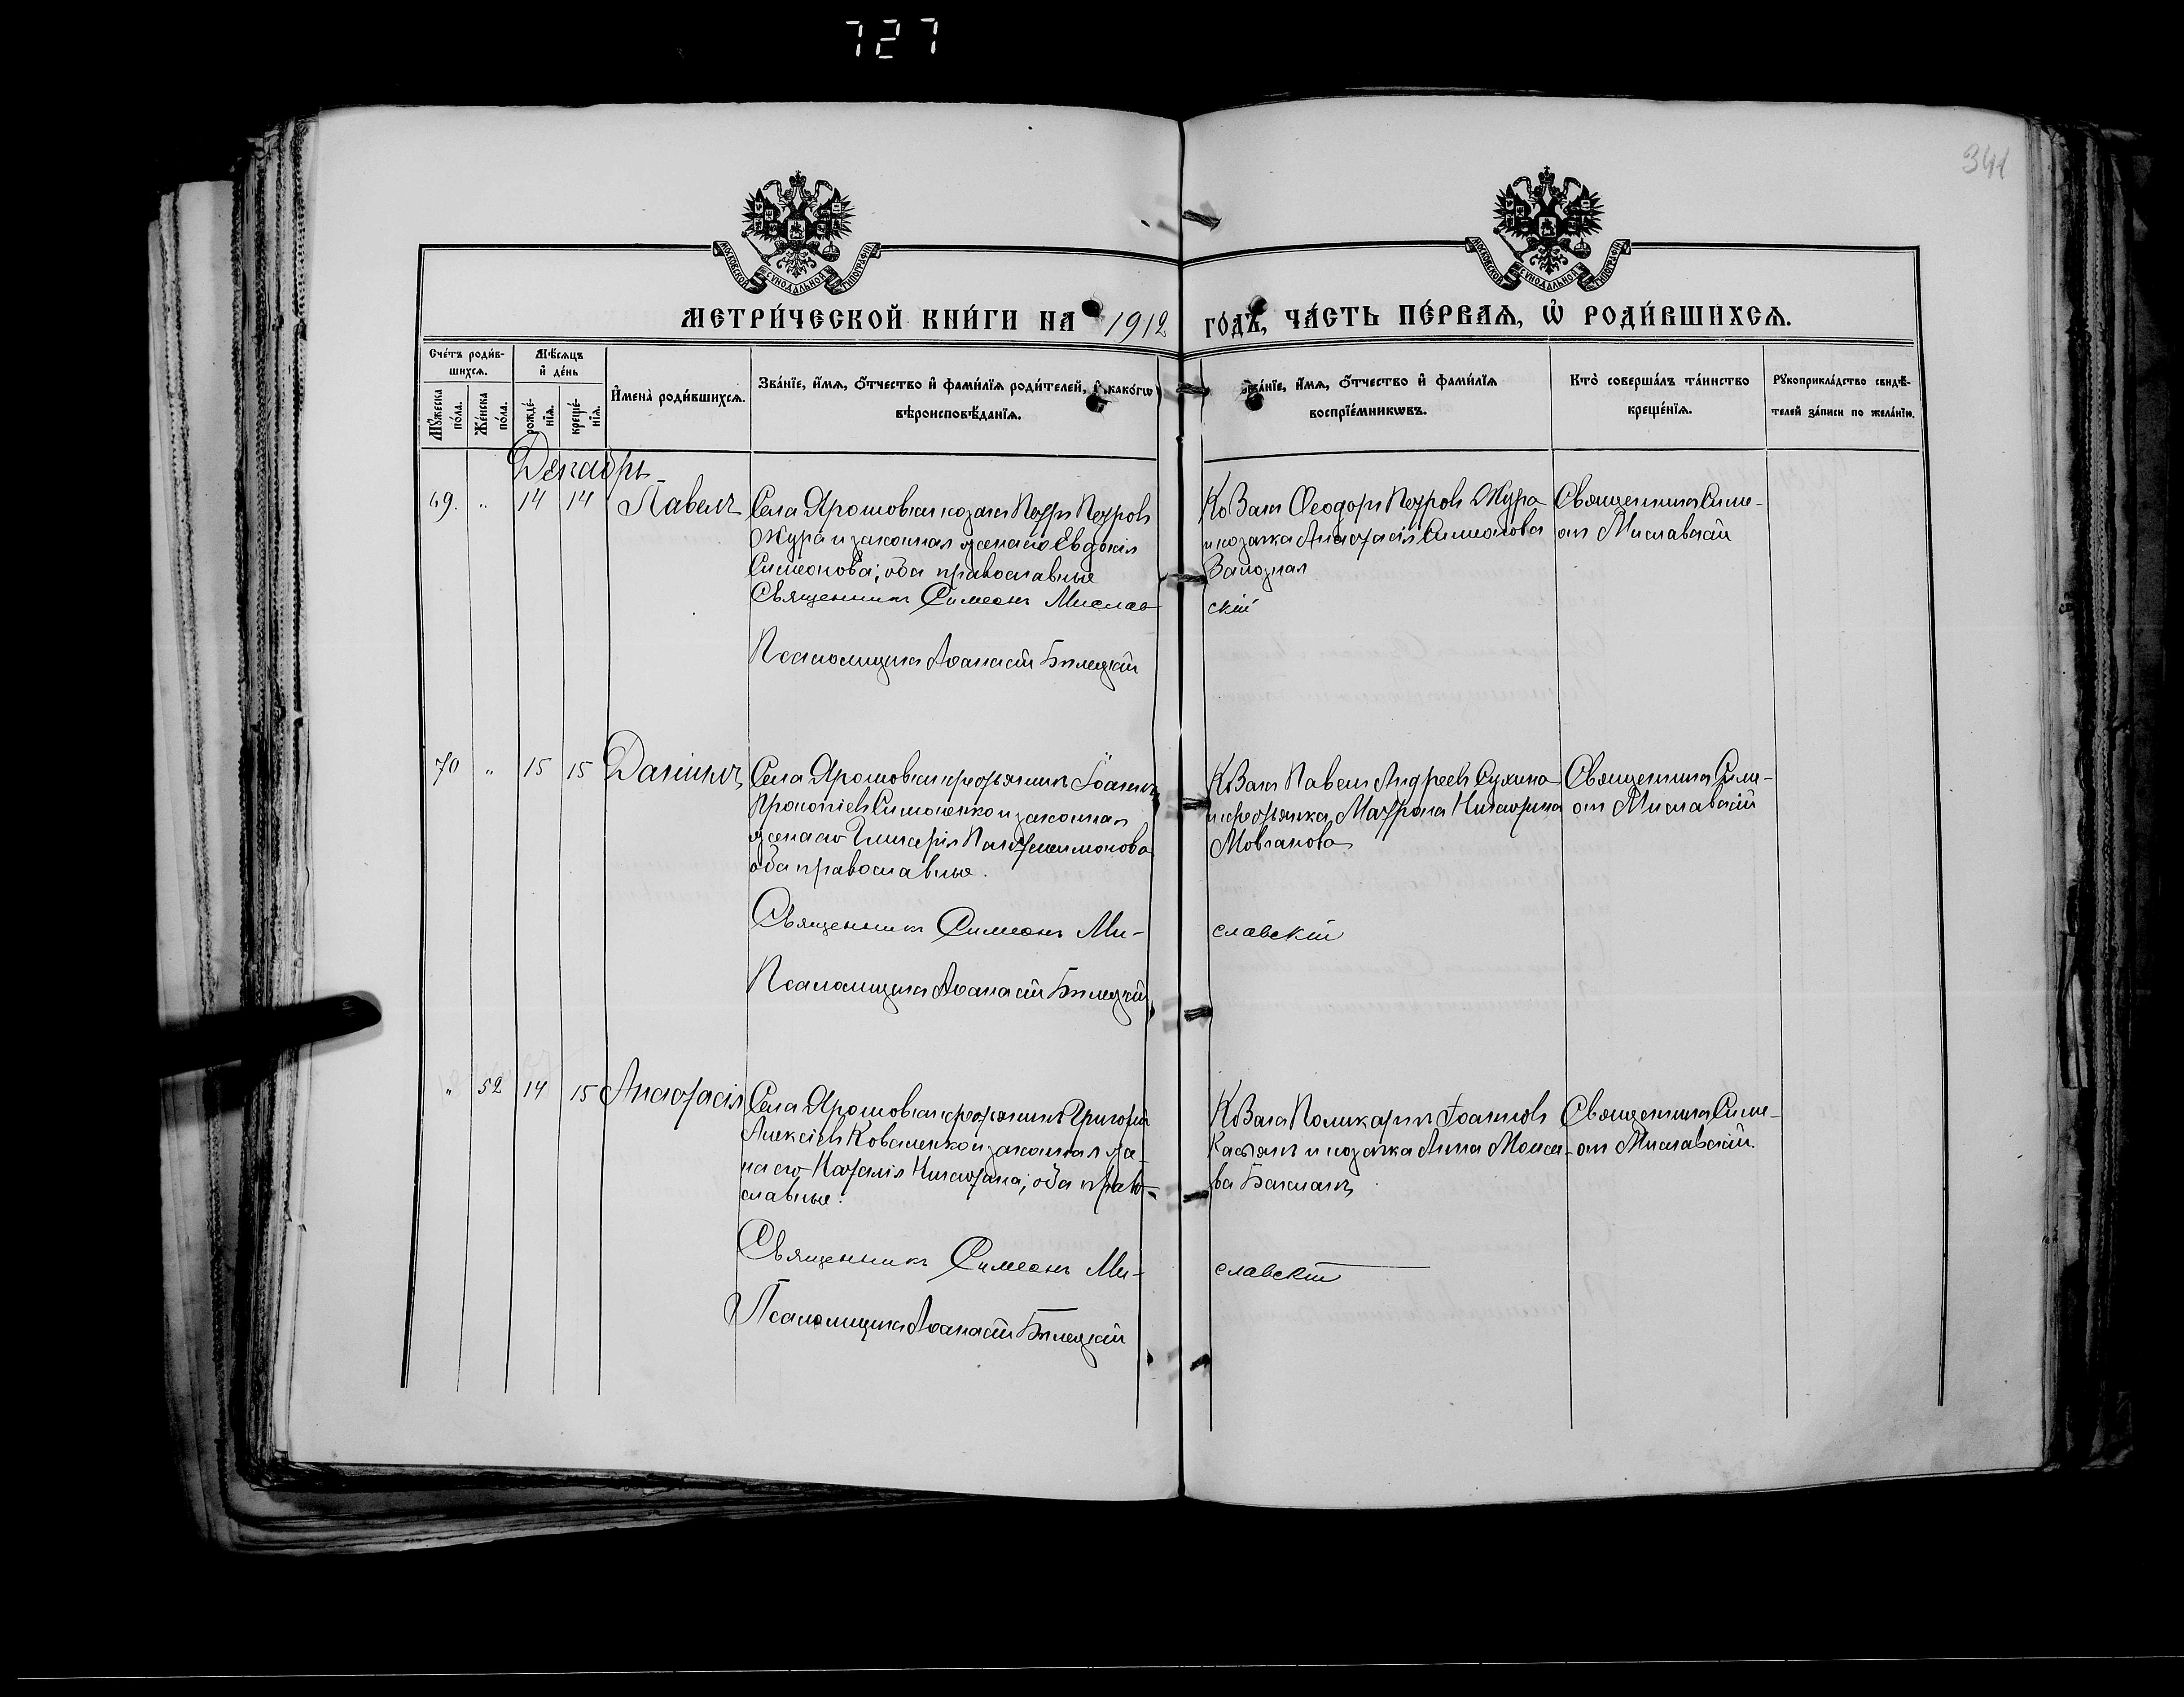 727
341
МОСКОВСКОЙ СѴНОДАЛЬНОЙ ТИПОГРАФІИ
МОСКОВСКОЙ СѴНОДАЛЬНОЙ ТИПОГРАФІИ
МЕТРИ́ЧЕСКОЙ КНИ́ГИ НА 1912 ГО́ДЪ, ЧА́СТЬ ПЕ́РВАЯ, Ѡ҆ РОДИ́ВШИХСЯ.
Сче́тъ роди́в-
шихся.
Мѣ́сяцъ
и҆ де́нь
Мꙋ́жеска
по́ла.
Же́нска
по́ла.
рожде́-
нїя.
креще́-
нїя.
И҆мена̀ роди́вшихся.
Зва́нїе, и҆́мя, ѻ҆́тчество и҆ фами́лїя роди́телей, и҆ како́гѡ
вѣроисповѣ́данїя.
Зва́нїе, и҆́мя, ѻ҆́тчество и҆ фами́лїя
воспрїе́мникѡвъ.
Кто̀ соверша́лъ та́инство
креще́нїя.
Рꙋкоприкла́дство свидѣ́-
телей за́писи по жела́нїю.
Декабрь
69. „ 14 14 Павелъ
Села Ярошовки козакъ Петръ Петровъ
Жура и законная жена его Евдокія
Симеонова; оба православные
Священникъ Симеонъ Мислав
скій
Псаломщикъ Аѳанасій Билецкій
Козакъ Ѳеодоръ Петровъ Жура
и козачка Анастасія Симеонова
Священникъ Симе-
онъ Миславскій
70 „ 15 15 Даніилъ
Села Ярошовки крестьянинъ Іоаннъ
Прокопіевъ Симоненко и законная
жена его Гликерія Пантелеимонова
оба православные.
Священникъ Симеонъ Ми-
славскій
Псаломщикъ Аѳанасій Билецкій
Козакъ Павелъ Андреевъ Сухина
и крестьянка Матрона Никифорова
Мовчанова
Священникъ Симе-
онъ Миславскій
„ 52 14 15 Анастасія
Села Ярошовки крестьянинъ Григорій
Алексіевъ Коваленко и законная же-
на его Наталія Никитина; оба право-
славные.
Священникъ Симеонъ Ми-
славскій
Псаломщикъ Аѳанасій Билецкій
Козакъ Поликарпъ Іоанновъ
Касьянъ и козачка Анна Моисе-
ева Бакланъ
Священникъ Симе-
онъ Миславскій